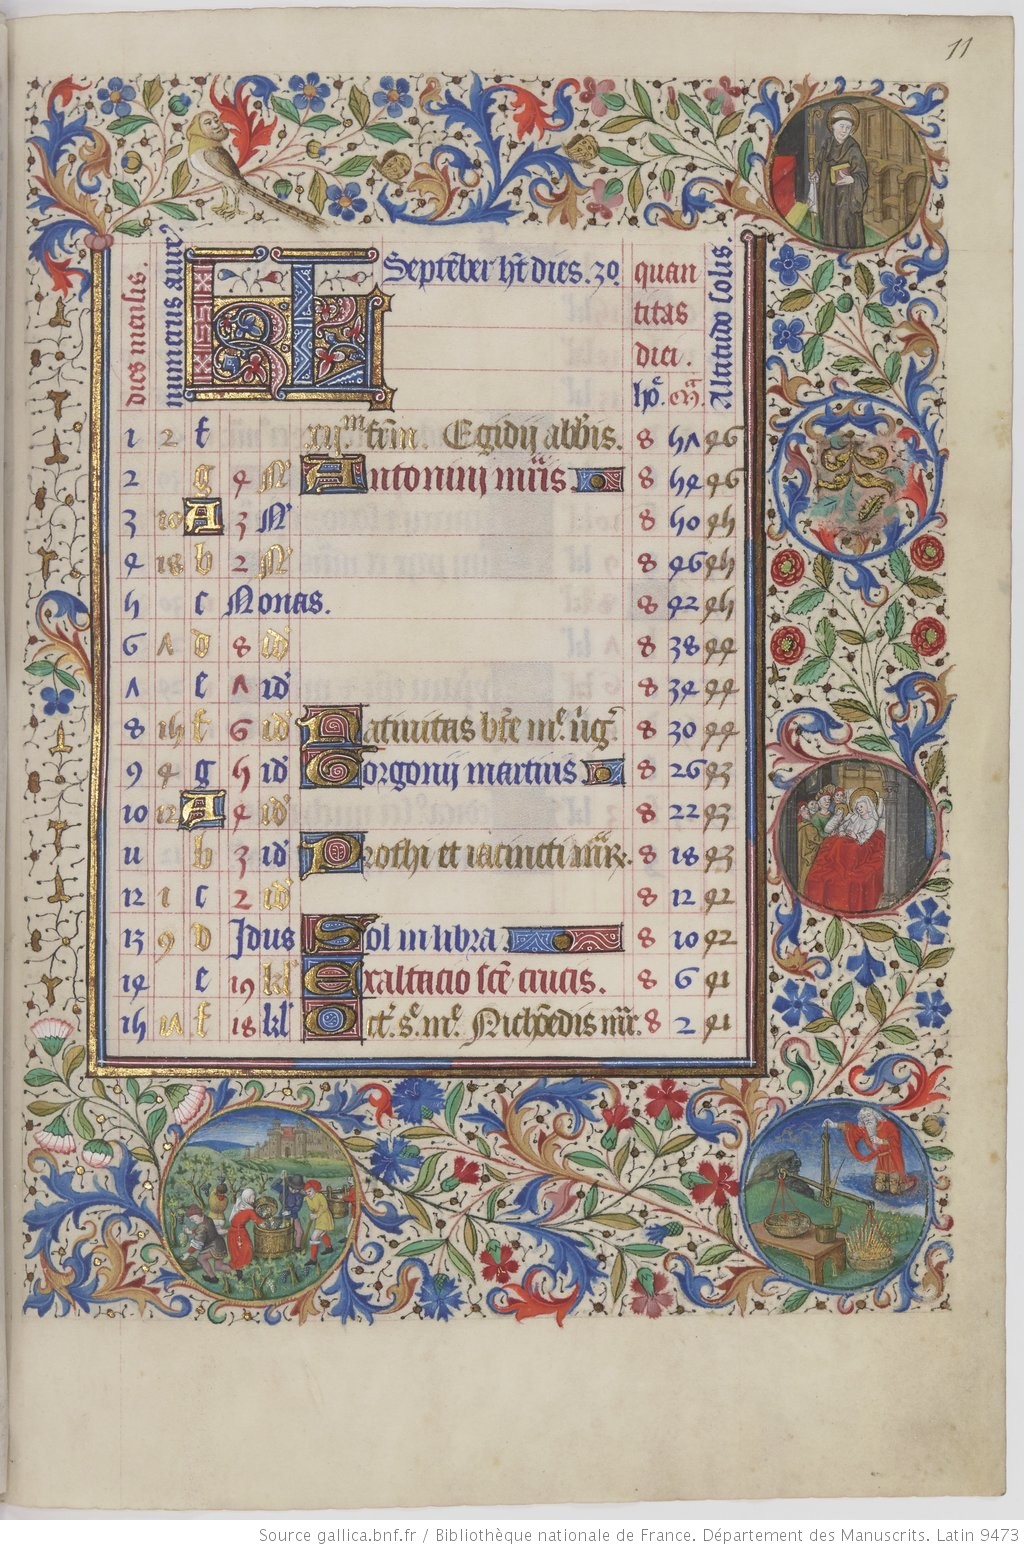 11
dies mensis.
numerus aure9
KL
Septēber ht dies. 30
quan
titas
diei.
ho.
Altitudo solis.
1 2 f xij frm. Egidij abbis. 8 57 46
2 g 4 N Antonini mris 8 54 46
3 10 A 3 N 8 50 45
4 18 b 2 N 8 46 45
5 c Nonas. 8 42 45
6 7 d 8 id 8 38 44
7 e 7 id 8 34 44
8 15 f 6 id Natiuitas bte me. uig 8 30 44
9 4 g 5 id Gorgonij martiris 8 26 43
10 12 A 4 id 8 22 43
11 b 3 id Prothi et iacincti mr. 8 18 43
12 1 c 2 id 8 12 42
13 9 d Idus Sol in libra 8 10 42
14 e 19 kl Exaltacio sce crucis. 8 6 41
15 17 f 18 kl Oct. Se. me. Nichōedis mr. 8 2 41
Source gallica.bnf.fr / Bibliothèque nationale de France. Département des Manuscrits. Latin 9473